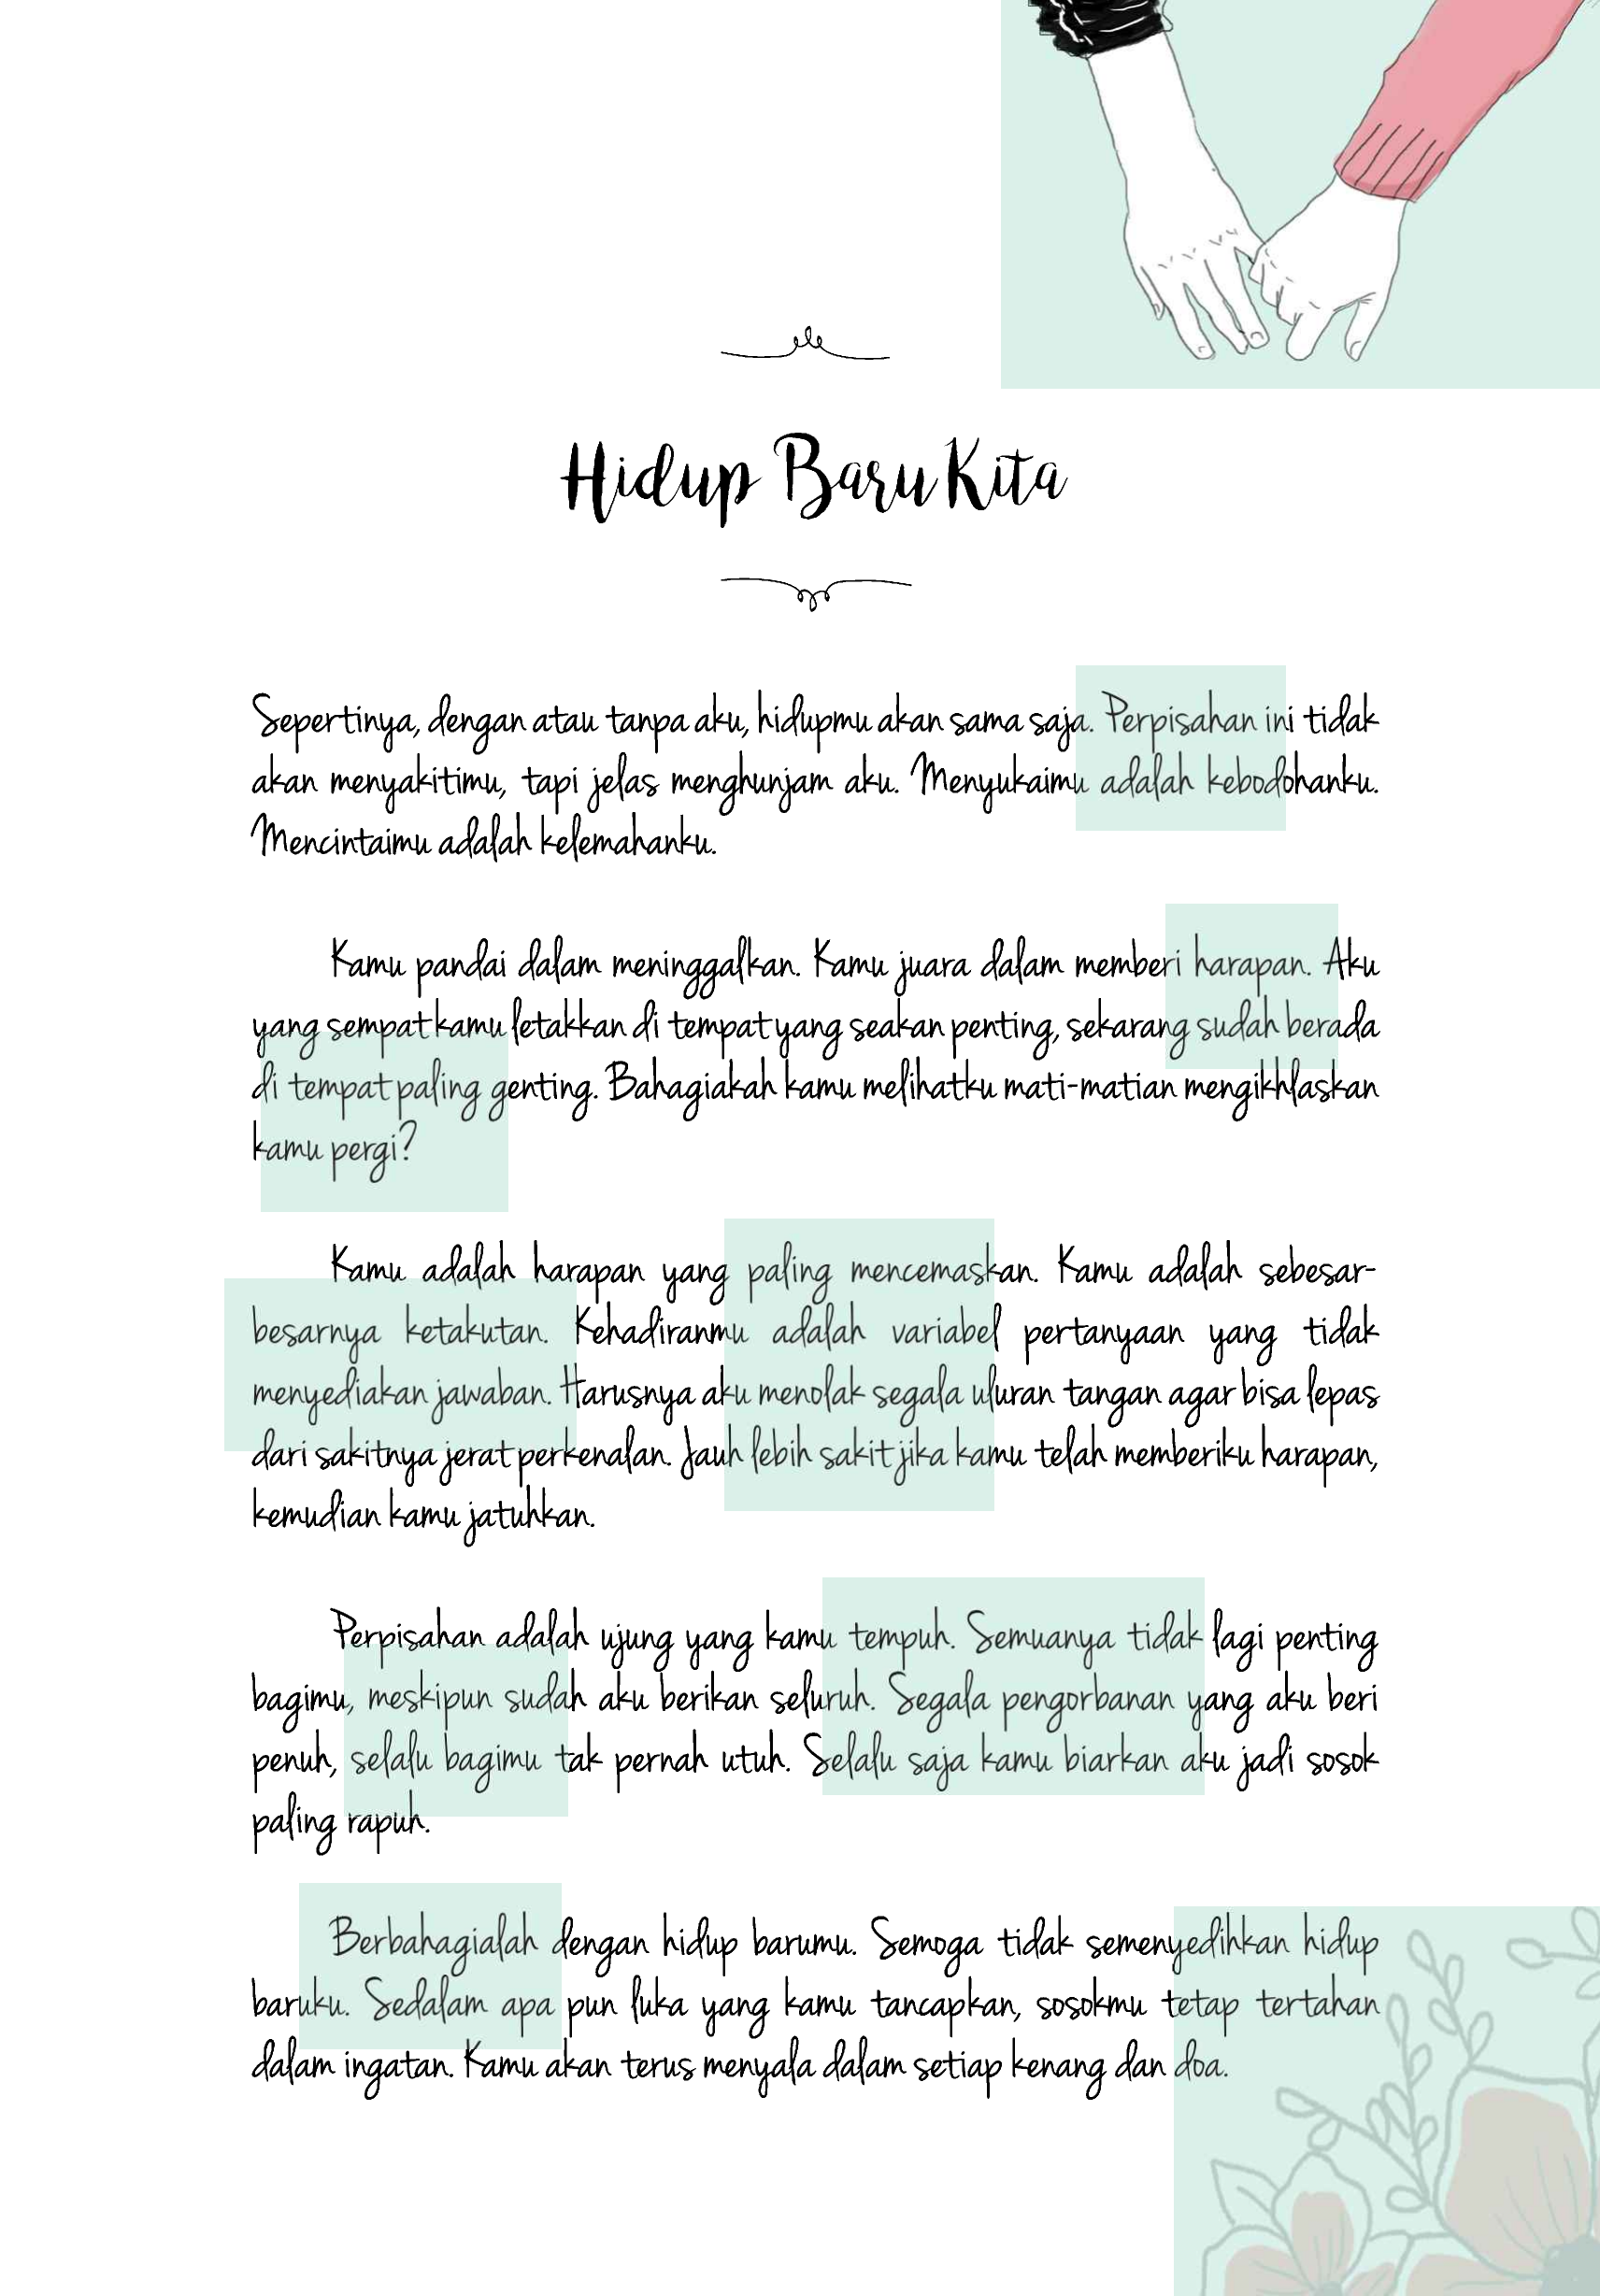 Hidup Baru Kita
Sepertinya, dengan atau tanpa aku, hidupmu akan sama saja. Perpisahan ini tidak
akan menyakitimu, tapi jelas menghunjam aku. Menyukaimu adalah kebodohanku.
Mencintaimu adalah kelemahanku.
Kamu pandai dalam meninggalkan. Kamu juara dalam memberi harapan. Aku
yang sempat kamu letakkan di tempat yang seakan penting, sekarang sudah berada
di tempat paling genting. Bahagiakah kamu melihatku mati-matian mengikhlaskan
kamu pergi?
Kamu adalah harapan yang paling mencemaskan. Kamu adalah sebesar-
besarnya ketakutan. Kehadiranmu adalah variabel pertanyaan yang tidak
menyediakan jawaban. Harusnya aku menolak segala uluran tangan agar bisa lepas
dari sakitnya jerat perkenalan. Jauh lebih sakit jika kamu telah memberiku harapan,
kemudian kamu jatuhkan.
Perpisahan adalah ujung yang kamu tempuh. Semuanya tidak lagi penting
bagimu, meskipun sudah aku berikan seluruh. Segala pengorbanan yang aku beri
penuh, selalu bagimu tak pernah utuh. Selalu saja kamu biarkan aku jadi sosok
paling rapuh.
Berbahagialah dengan hidup barumu. Semoga tidak semenyedihkan hidup
baruku. Sedalam apa pun luka yang kamu tancapkan, sosokmu tetap tertahan
dalam ingatan. Kamu akan terus menyala dalam setiap kenang dan doa.